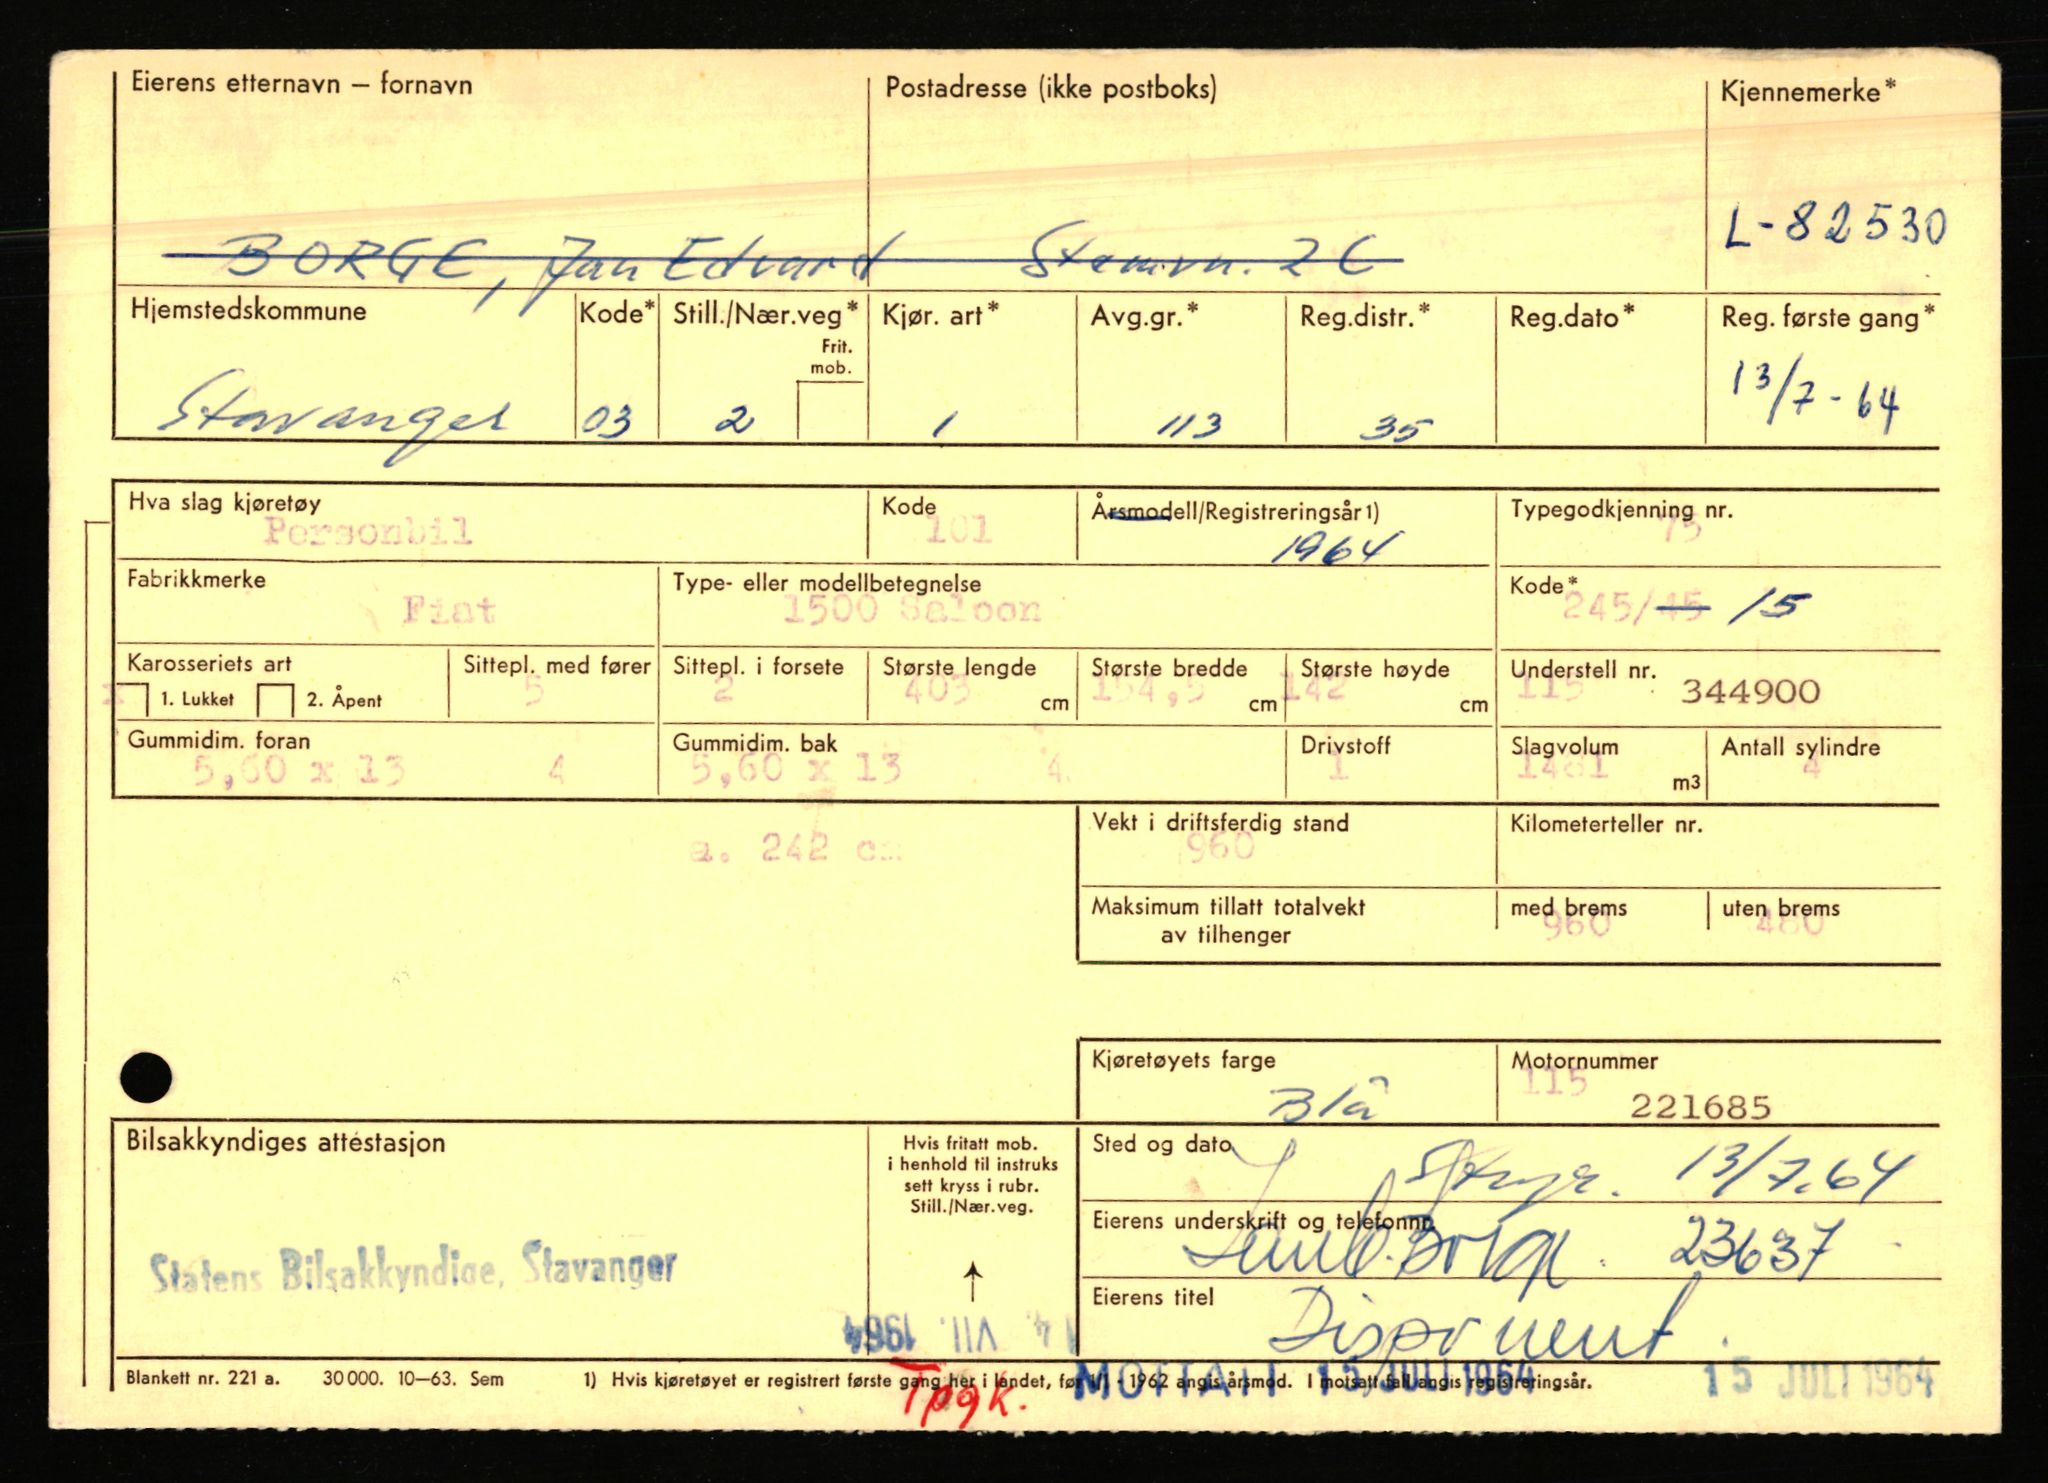 Eierens etternavn — fornavn Postadresse (ikke postboks) Kjennemerke*
L-82530
BORGE, Jan Edvard Stemvn. 2C
Hjemstedskommune Kode* Still./Nær.veg* Kjør. art* Avg.gr.* Reg.distr.* Reg.dato* Reg. første gang*
Frit.
mob.
13/7-64
Stavanger 03 2 1 113 35
Hva slag kjøretøy Kode Årsmodell/Registreringsår1) Typegodkjenning nr.
Personbil 101 1964 75
Fabrikkmerke Type- eller modellbetegnelse Kode*
Fiat 1500 Saloon 245/45 15
Karosseriets art Sittepl. med fører Sittepl. i forsete Største lengde Største bredde Største høyde Understell nr.
x 1. Lukket 2. Åpent 5 2 403 cm 154,5 cm 142 cm 115 344900
Gummidim. foran Gummidim. bak Drivstoff Slagvolum Antall sylindre
5,60 x 13 4 5,60 x 13 4 1 1481 m3 4
Vekt i driftsferdig stand Kilometerteller nr.
a. 242 cm 960
Maksimum tillatt totalvekt med brems uten brems
av tilhenger 960 480
Kjøretøyets farge Motornummer
Blå 115 221685
Bilsakkyndiges attestasjon
Hvis fritatt mob.
i henhold til instruks
sett kryss i rubr.
Still./Nær.veg.
Sted og dato
13/7.64
Eierens underskrift og telefonnr.
Borge. 23637
Statens Bilsakkyndige, Stavanger
Eierens titel
Disponent
14. VII. 1964
Blankett nr. 221 a. 30 000. 10—63. Sem 1) Hvis kjøretøyet er registrert første gang her i landet, før 1/1 - 1962 angis årsmod. I motsatt fall angis registreringsår.
MOTTATT 15 JULI 1964 15 JULI 1964
Tpgk.